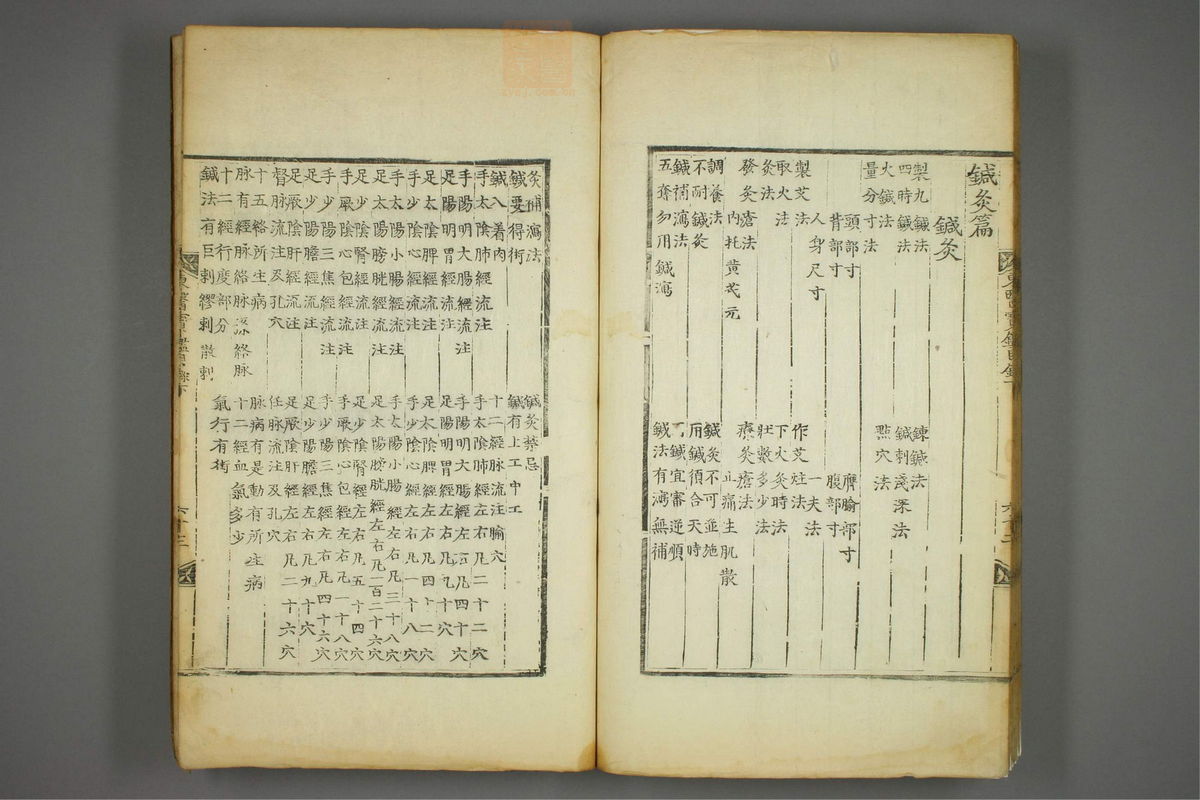 鍼灸篇
鍼灸
製九鍼法 鍊鍼法
四時鍼法 鍼刺淺深法
火鍼法 點穴法
量分寸法
頭部寸 膺腧部寸
背部寸 腹部寸
人身尺寸 一夫法
製艾法 作艾炷法
取火法 下火灸時法
灸法 壯數多少法
發灸瘡法 療灸瘡法
內托黃芪元 止痛生肌散
調養法 鍼灸不可並施
不耐鍼灸 用鍼須合天時
鍼補瀉法 鍼宜審逆順
五奪勿用鍼瀉 鍼法有瀉無補
東醫寶鑑目錄下
灸補瀉法 鍼灸禁忌
鍼要得術 鍼有上工中工
鍼入着肉 十二經脉流注腧穴
手太陰肺經流注 手太陰肺經左右凡二十二穴
手陽明大腸經流注 手陽明大腸經左右凡四十穴
足陽明胃經流注 足陽明胃經左右凡九十穴
足太陰脾經流注 足太陰脾經左右凡四十二穴
手少陰心經流注 手少陰心經左右凡一十八穴
手太陽小腸經流注 手太陽小腸經左右凡三十八穴
足太陽膀胱經流注 足太陽膀胱經左右凡一百二十六穴
足少陰腎經流注 足少陰腎經左右凡五十四穴
手厥陰心包經流注 手厥陰心包經左右凡一十八穴
手少陽三焦經流注 手少陽三焦經左右凡四十六穴
足少陽膽經流注 足少陽膽經左右凡九十穴
足厥陰肝經流注 足厥陰肝經左右凡二十六穴
督脉流注及孔穴 任脉流注及孔穴
十五絡所生病 脉病有是動有所生病
脉有經脉絡脉孫絡脉 十二經血氣多少
十二經行度部分 氣行有街
鍼法有巨刺繆刺散刺
東醫寶鑑目錄下